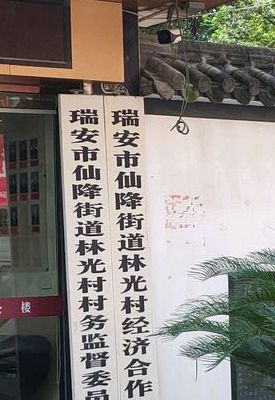 瑞安市仙降街道林光村村务监督委员
瑞安市仙降街道林光村经济合作
楼